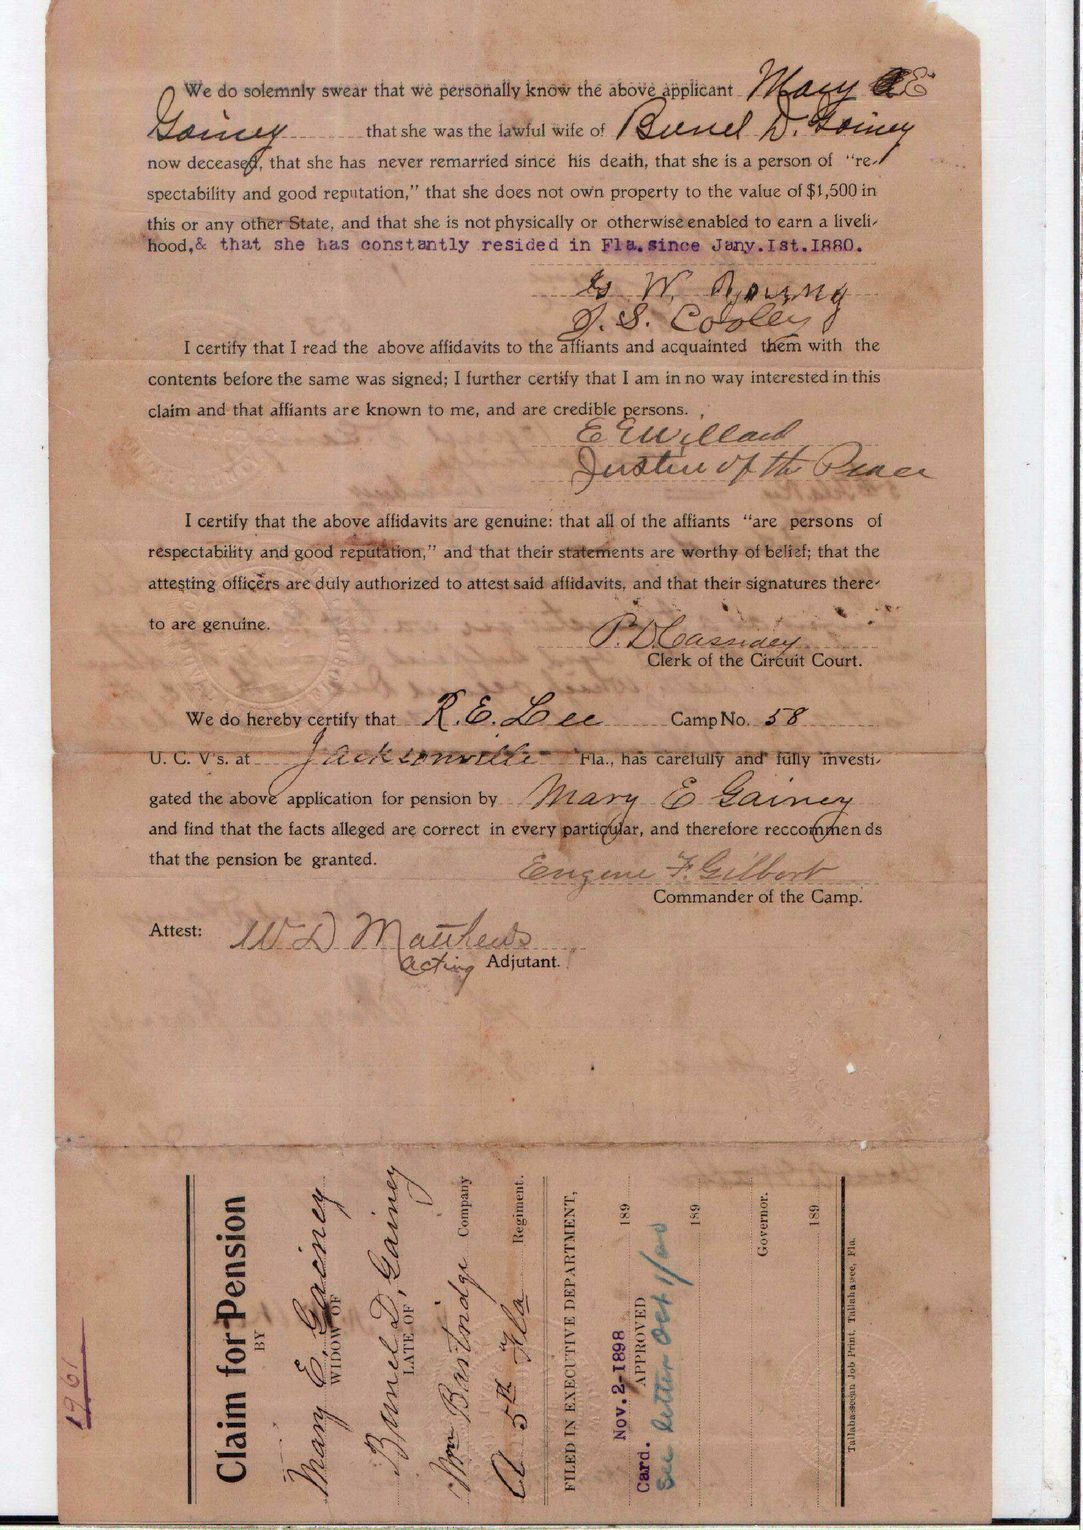 We do solemnly swear that we personally know the above applicant Mary E
Gainey that she was the lawful wife of Burrel D. Gainey
now deceased, that she has never remarried since his death, that she is a person of "re-
spectability and good reputation," that she does not own property to the value of $1,500 in
this or any other State, and that she is not physically or otherwise enabled to earn a liveli-
hood,& that she has constantly resided in Fla.since Jany.Ist.I880.
W.
J. S. Cooley
I certify that I read the above affidavits to the affiants and acquainted them with the
contents before the same was signed; I further certify that I am in no way interested in this
claim and that affiants are known to me, and are credible persons.
E E Willard
Justice of the Peace
I certify that the above affidavits are genuine: that all of the affiants "are persons of
respectability and good reputation," and that their statements are worthy of belief; that the
attesting officers are duly authorized to attest said affidavits, and that their signatures there-
to are genuine.
P. D. Cassidey
Clerk of the Circuit Court.
We do hereby certify that R. E. Lee Camp No. 58
U. C. V's. at Jacksonville Fla., has carefully and fully investi-
gated the above application for pension by Mary E Gainey
and find that the facts alleged are correct in every particular, and therefore reccommends
that the pension be granted.
Eugene F. Gilbert
Commander of the Camp.
Attest: W D Matthews
acting Adjutant.
1961
Claim for Pension
BY
Mary E. Gainey
WIDOW OF
D. Gainey
LATE OF
Wm Company
A 5th Fla Regiment.
FILED IN EXECUTIVE DEPARTMENT,
Nov. 2-1898 189
Card. APPROVED
See letter Oct 1/00
189
Governor.
189
Tallahasseean Job Print, Tallahassee, Fla.